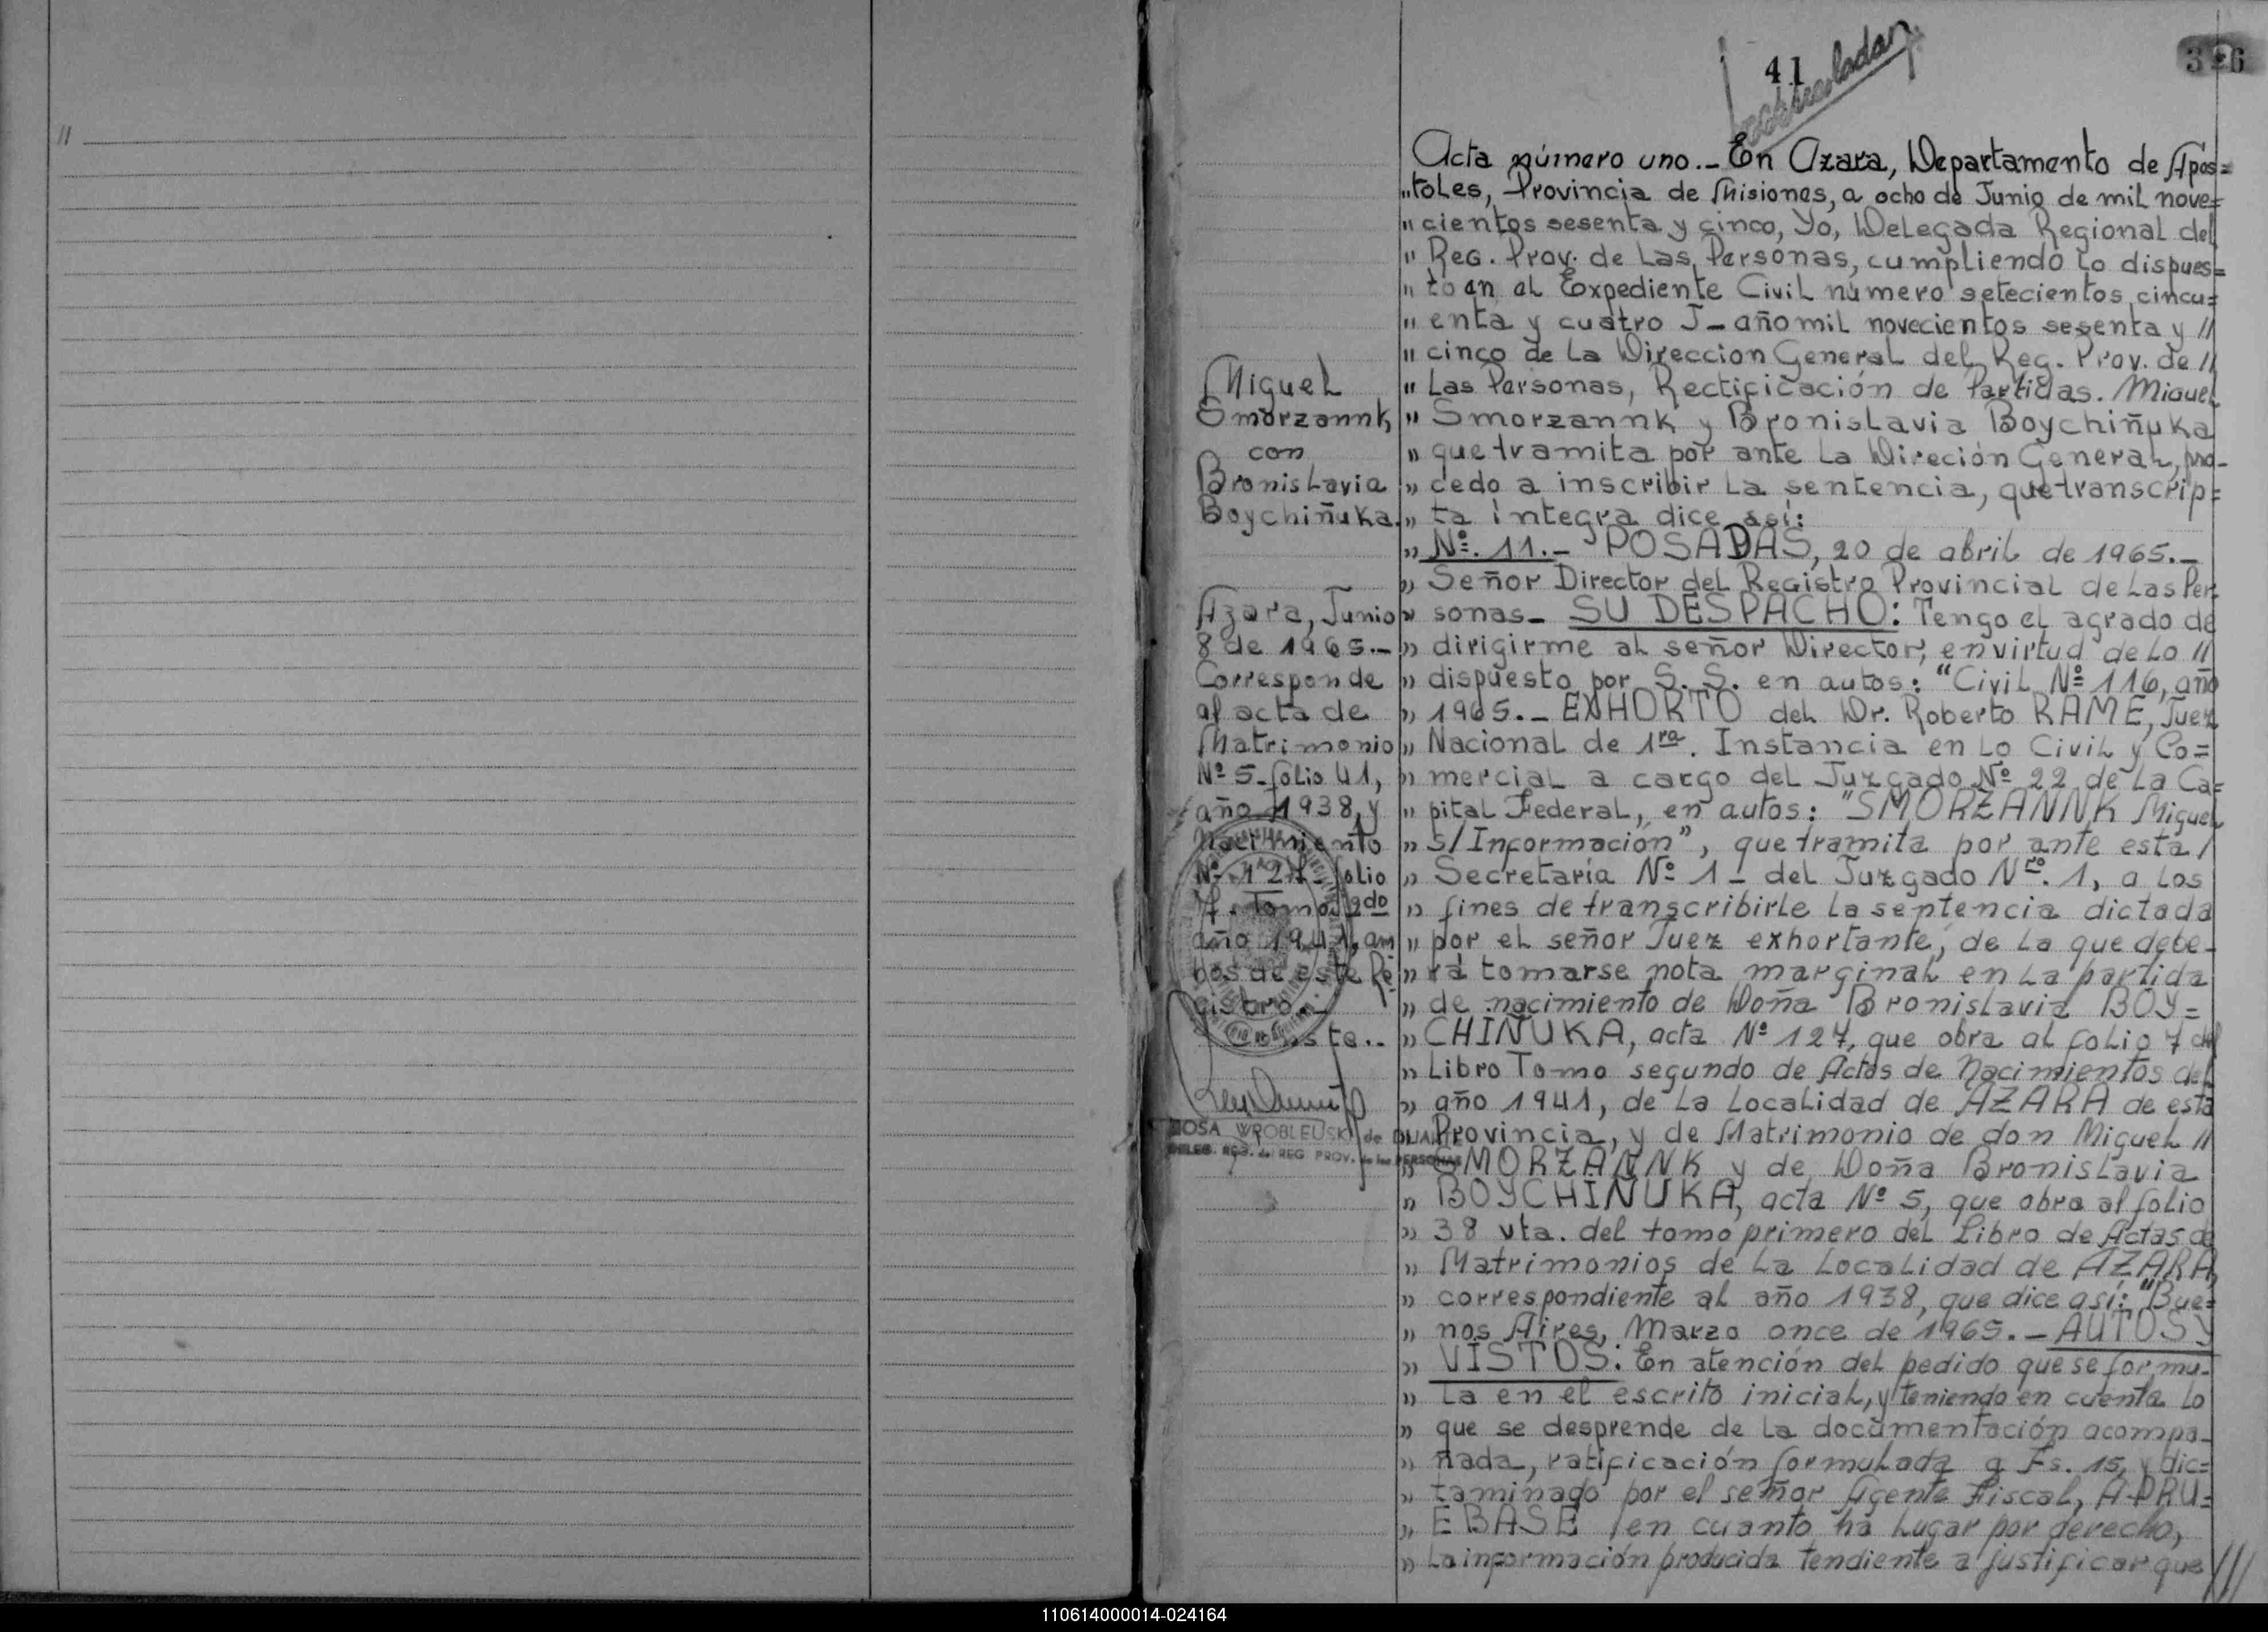 //
41
326
Acta número uno.- En Azara, Departamento de Após=
" toles, Provincia de Misiones, a ocho de Junio de mil nove=
" cientos sesenta y cinco, Yo, Delegada Regional del
" Reg. Prov. de Las Personas, cumpliendo lo dispues=
" to en el Expediente Civil número setecientos cincu=
" enta y cuatro J- año mil novecientos sesenta y //
" cinco de la Direccion General del Reg. Prov. de //
" Las Personas, Rectificación de Partidas. Miguel
" Smorzannk y Bronislavia Boychiñuka
" que tramita por ante la Direción General, pro-
" cedo a inscribir la sentencia, que transcrip=
" ta integra dice así:
" Nº. 11.- POSADAS, 20 de abril de 1965.-
" Señor Director del Registro Provincial de Las Per-
" sonas- SU DESPACHO: Tengo el agrado de
" dirigirme al señor Director, en virtud de lo //
" dispuesto por S. S. en autos: "Civil Nº 116, año
" 1965.- EXHORTO del Dr. Roberto RAMÉ, Juez
" Nacional de 1ra. Instancia en lo Civil y Co=
" mercial a cargo del Juzgado Nº 22 de la Ca=
" pital Federal, en autos: "SMORZANNK Miguel
" S/Información", que tramita por ante esta /
" Secretaría Nº 1- del Juzgado Nro. 1, a los
" fines de transcribirle la sentencia dictada
" por el señor Juez exhortante, de la que debe-
" rá tomarse nota marginal en la partida
" de nacimiento de Doña Bronislavia BOY=
" CHIÑUKA, acta Nº 127, que obra al folio 7 del
" Libro Tomo segundo de Actas de Nacimientos del
" año 1941, de la Localidad de AZARA de esta
" Provincia, y de Matrimonio de don Miguel //
" SMORZANNK y de Doña Bronislavia
" BOYCHIÑUKA, acta Nº 5, que obra al folio
" 38 vta. del tomo primero del Libro de Actas de
" Matrimonios de La Localidad de AZARA,
" correspondiente al año 1938, que dice así: "Bue=
" nos Aires, Marzo once de 1965.- AUTOS Y
" VISTOS: En atención del pedido que se formu-
" la en el escrito inicial, y teniendo en cuenta lo
" que se desprende de la documentación acompa-
" ñada, ratificación formulada a Fs. 15, y dic=
" taminado por el señor Agente Fiscal, APRU=
" EBASE en cuanto ha lugar por derecho,
" la información producida tendiente a justificar que ///
Miguel
Smorzannk
con
Bronislavia
Boychiñuka.
Azara, Junio
8 de 1965.-
Corresponde
al acta de
Matrimonio
Nº 5-folio 41,
año 1938, y
Nacimiento
Nº 127-folio
7. Tomo 2do
año 1941, am
bos de este Re-
gistro.-
Conste..
ROSA WROBLEUSKI de DUARTE
DELEG. REG. del REG PROV. de las PERSONAS
110614000014-024164